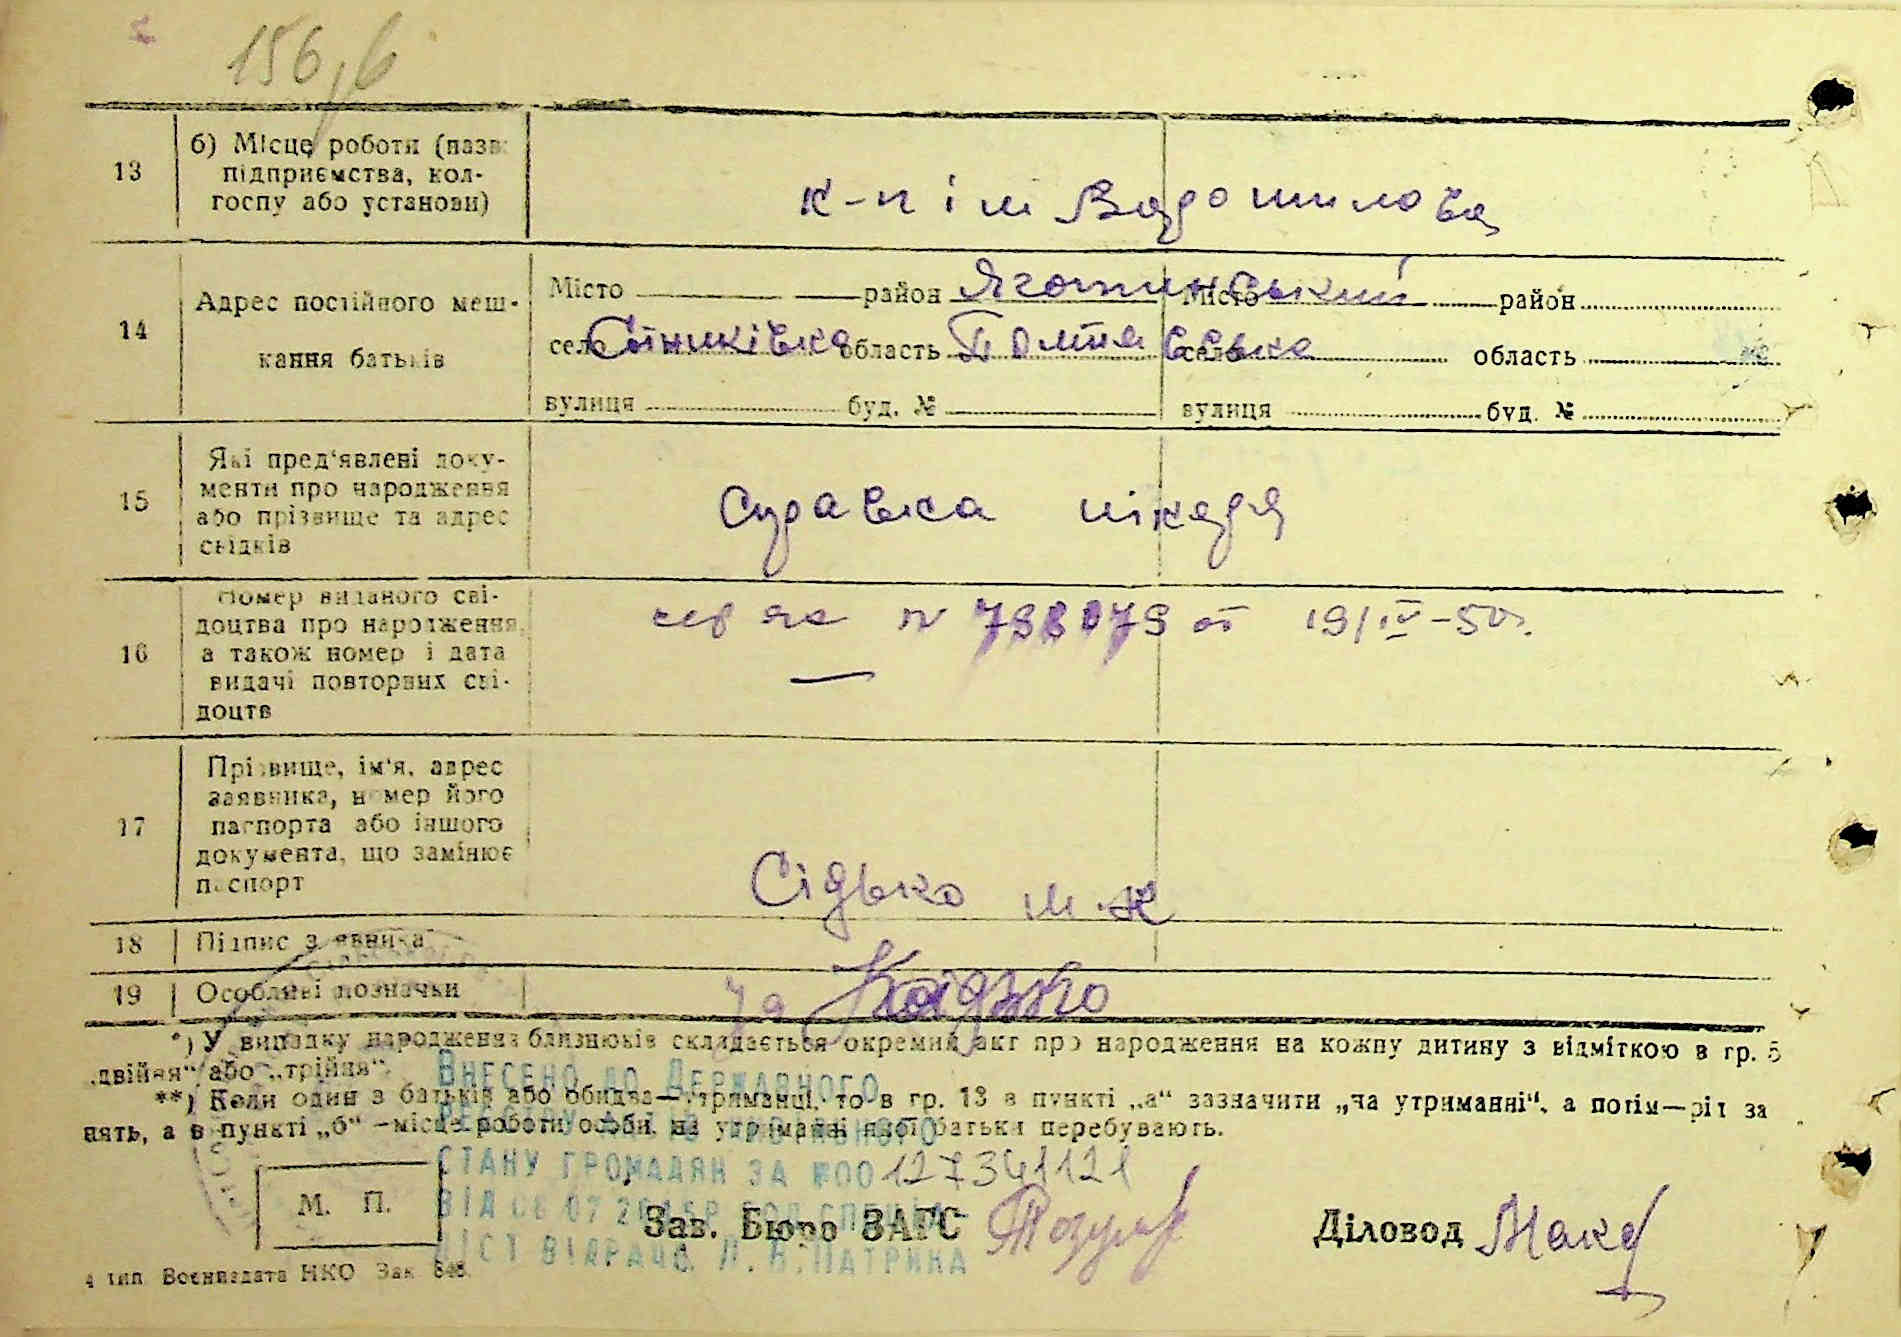 156, б
13 б) Місце роботи (назва
підприємства, кол-
госпу або установи)
к-п ім Ворошилова
14 Адрес постійного меш-
кання батьків
Місто район Яготинський Місто район
село Сотниківка область Полтавська село область
вулиця буд. № вулиця буд. №
15 Які пред'явлені доку-
менти про народження
або прізвище та адрес
свідків
Справка лікаря
16 Номер виданого сві-
доцтва про народження,
а також номер і дата
видачі повторних сві-
доцтв
от 19/IV-50р.
17 Прізвище, ім'я, адрес
заявника, номер його
паспорта або іншого
документа, що замінює
паспорт
Сідько М.К
18 Підпис заявника
19 Особливі позначки
*) У випадку народження близнюків складається окремий акт про народження на кожну дитину з відміткою в гр. 5
„двійня" або „трійня".
**) Коли один з батьків або обидва—утриманці, то в гр. 13 в пункті „а" зазначити „на утриманні", а потім—рід за
нять, а в пункті „б" —місце роботи особи, на утриманні якої батьки перебувають.
Внесено до Державного
реєстру актів цивільного
стану громадян за №00127341121
М. П.
Зав. Бюро ЗАГС
Діловод
4 тип Воєниздата НКО Зак